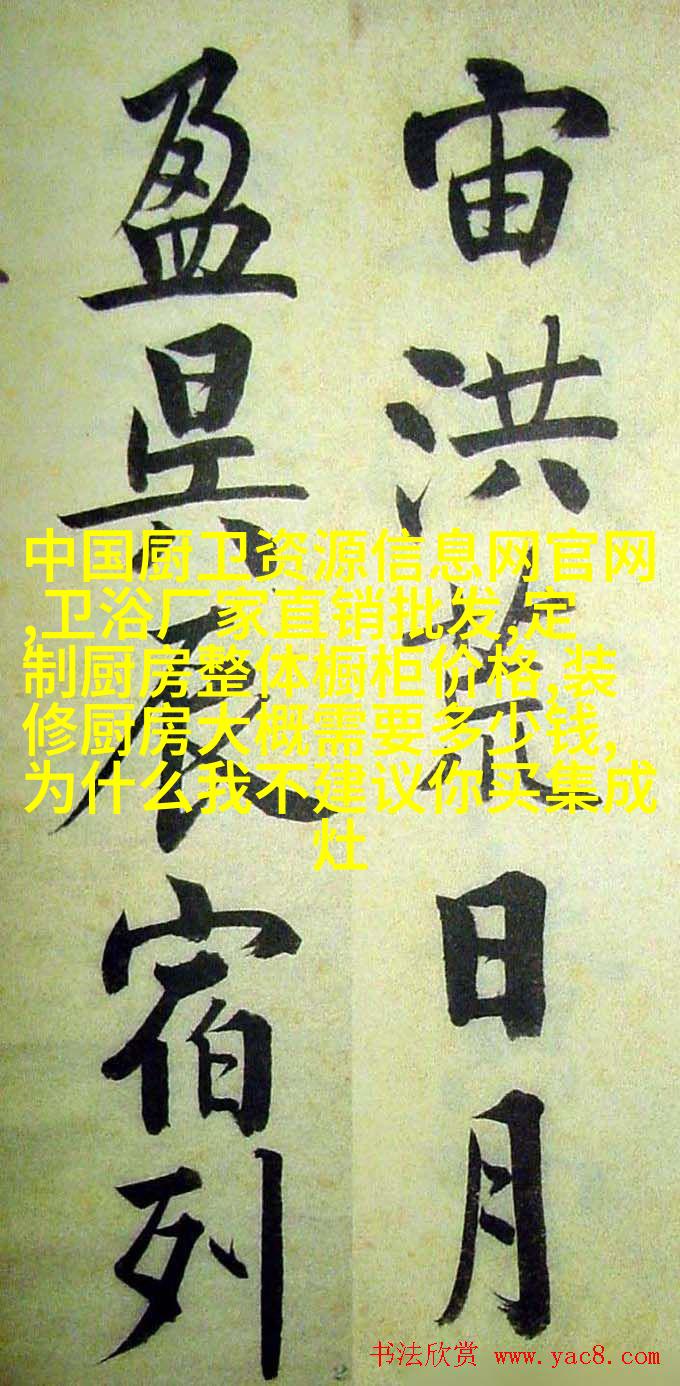 宙洪荒日月
盈昃辰宿列
中国厨卫资源信息网官网
,卫浴厂家直销批发,定
制厨房整体橱柜价格,装
修厨房大概需要多少钱,
为什么我不建议你买集成
灶
书法欣赏 www.yac8.com